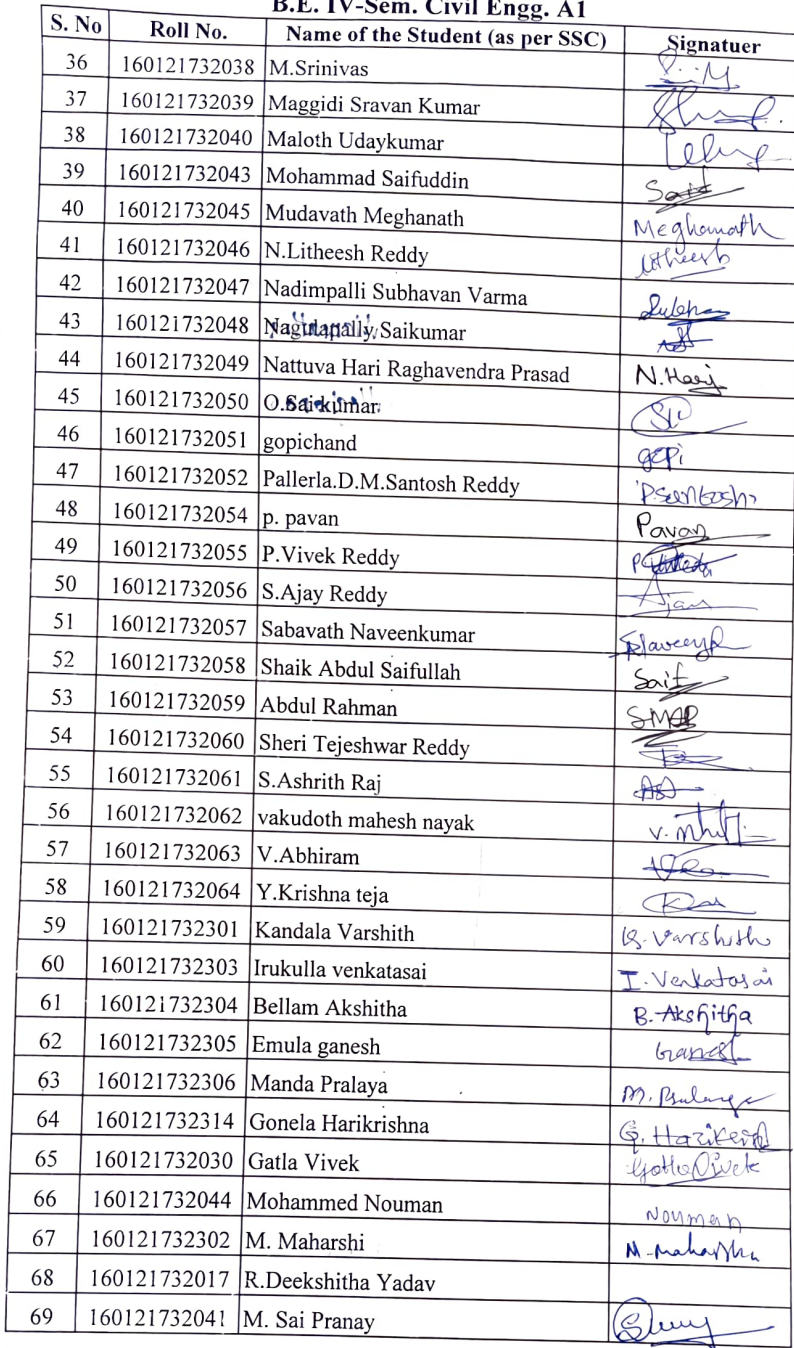 B.E. IV-Sem. Civil Engg. A1
S. No Roll No. Name of the Student (as per SSC) Signatuer
36 160121732038 M.Srinivas
37 160121732039 Maggidi Sravan Kumar
38 160121732040 Maloth Udaykumar
39 160121732043 Mohammad Saifuddin
40 160121732045 Mudavath Meghanath Meghanath
41 160121732046 N.Litheesh Reddy Litheesh
42 160121732047 Nadimpalli Subhavan Varma
43 160121732048 Nagulapally Saikumar
44 160121732049 Nattuva Hari Raghavendra Prasad N.Hari
45 160121732050 O.Saikumar
46 160121732051 gopichand gopi
47 160121732052 Pallerla.D.M.Santosh Reddy P.Santosh
48 160121732054 p. pavan Pavan
49 160121732055 P.Vivek Reddy
50 160121732056 S.Ajay Reddy Ajay
51 160121732057 Sabavath Naveenkumar
52 160121732058 Shaik Abdul Saifullah Saif
53 160121732059 Abdul Rahman SMAR
54 160121732060 Sheri Tejeshwar Reddy
55 160121732061 S.Ashrith Raj
56 160121732062 vakudoth mahesh nayak
57 160121732063 V.Abhiram
58 160121732064 Y.Krishna teja
59 160121732301 Kandala Varshith K. Varshith
60 160121732303 Irukulla venkatasai I. Venkatasai
61 160121732304 Bellam Akshitha B. Akshitha
62 160121732305 Emula ganesh Ganesh
63 160121732306 Manda Pralaya M. Pralaya
64 160121732314 Gonela Harikrishna
65 160121732030 Gatla Vivek Gatla Vivek
66 160121732044 Mohammed Nouman Nouman
67 160121732302 M. Maharshi M. Maharshi
68 160121732017 R.Deekshitha Yadav
69 160121732041 M. Sai Pranay